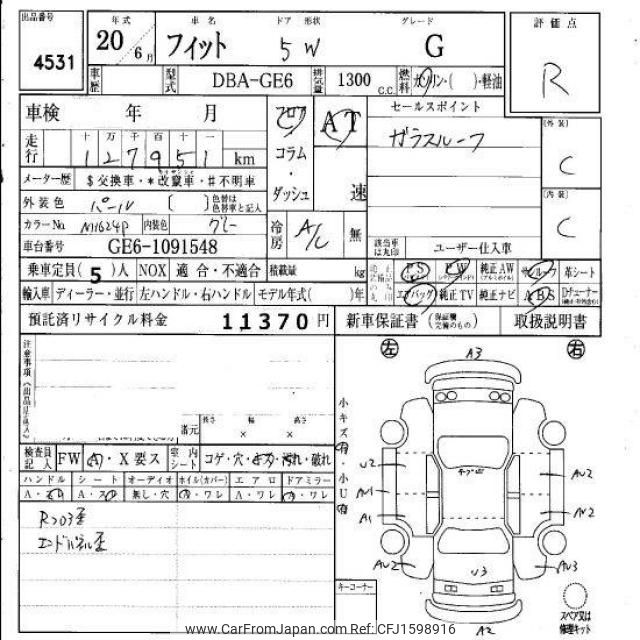 出品番号 年式 車名 ドア 形状 グレード 評価点
4531 20 6月 フィット 5W G R
車歴 型式 DBA-GE6 排気量 1300 C.C. 燃料 ガソリン・( )・軽油
車検 年 月 フロア AT セールスポイント
ガラスルーフ [外装]
走行 十 万 千 百 十 一 コラム C
127951 km
メーター歴 $交換車・*改竄車・#不明車 ダッシュ 速 [内装]
外装色 パール ( ) 色替は色替車と記入 C
カラーNo. NH624P 内装色 グレー 冷房 A/C 無
車台番号 GE6-1091548 該当車は丸印 ユーザー仕入車
乗車定員(5)人 NOX 適合・不適合 積載量 kg PS PW 純正AW サンルーフ 革シート
輸入車 ディーラー・並行 左ハンドル・右ハンドル モデル年式( )年 エアバッグ 純正TV 純正ナビ ABS
預託済リサイクル料金 11370円 新車保証書 取扱説明書
注意事項 左 A3 右
小キズ有・小U有
諸元 長さ × 幅 × 高さ
検査員記入 FW A・X要ス 室内シート コゲ・穴・キズ・汚れ・破れ
ハンドル シート オーディオ ホイル(カバー) エアロ ドアミラー U2 AU2
A・スレ A・スレ 無し・穴 A・ワレ A・ワレ A・ワレ AU1
A1 AU2
Rフロア歪
エンドパネル歪
AU2 U3 AU3
キーコーナー
A2 スペア又は修理キット
www.CarFromJapan.com Ref:CFJ1598916